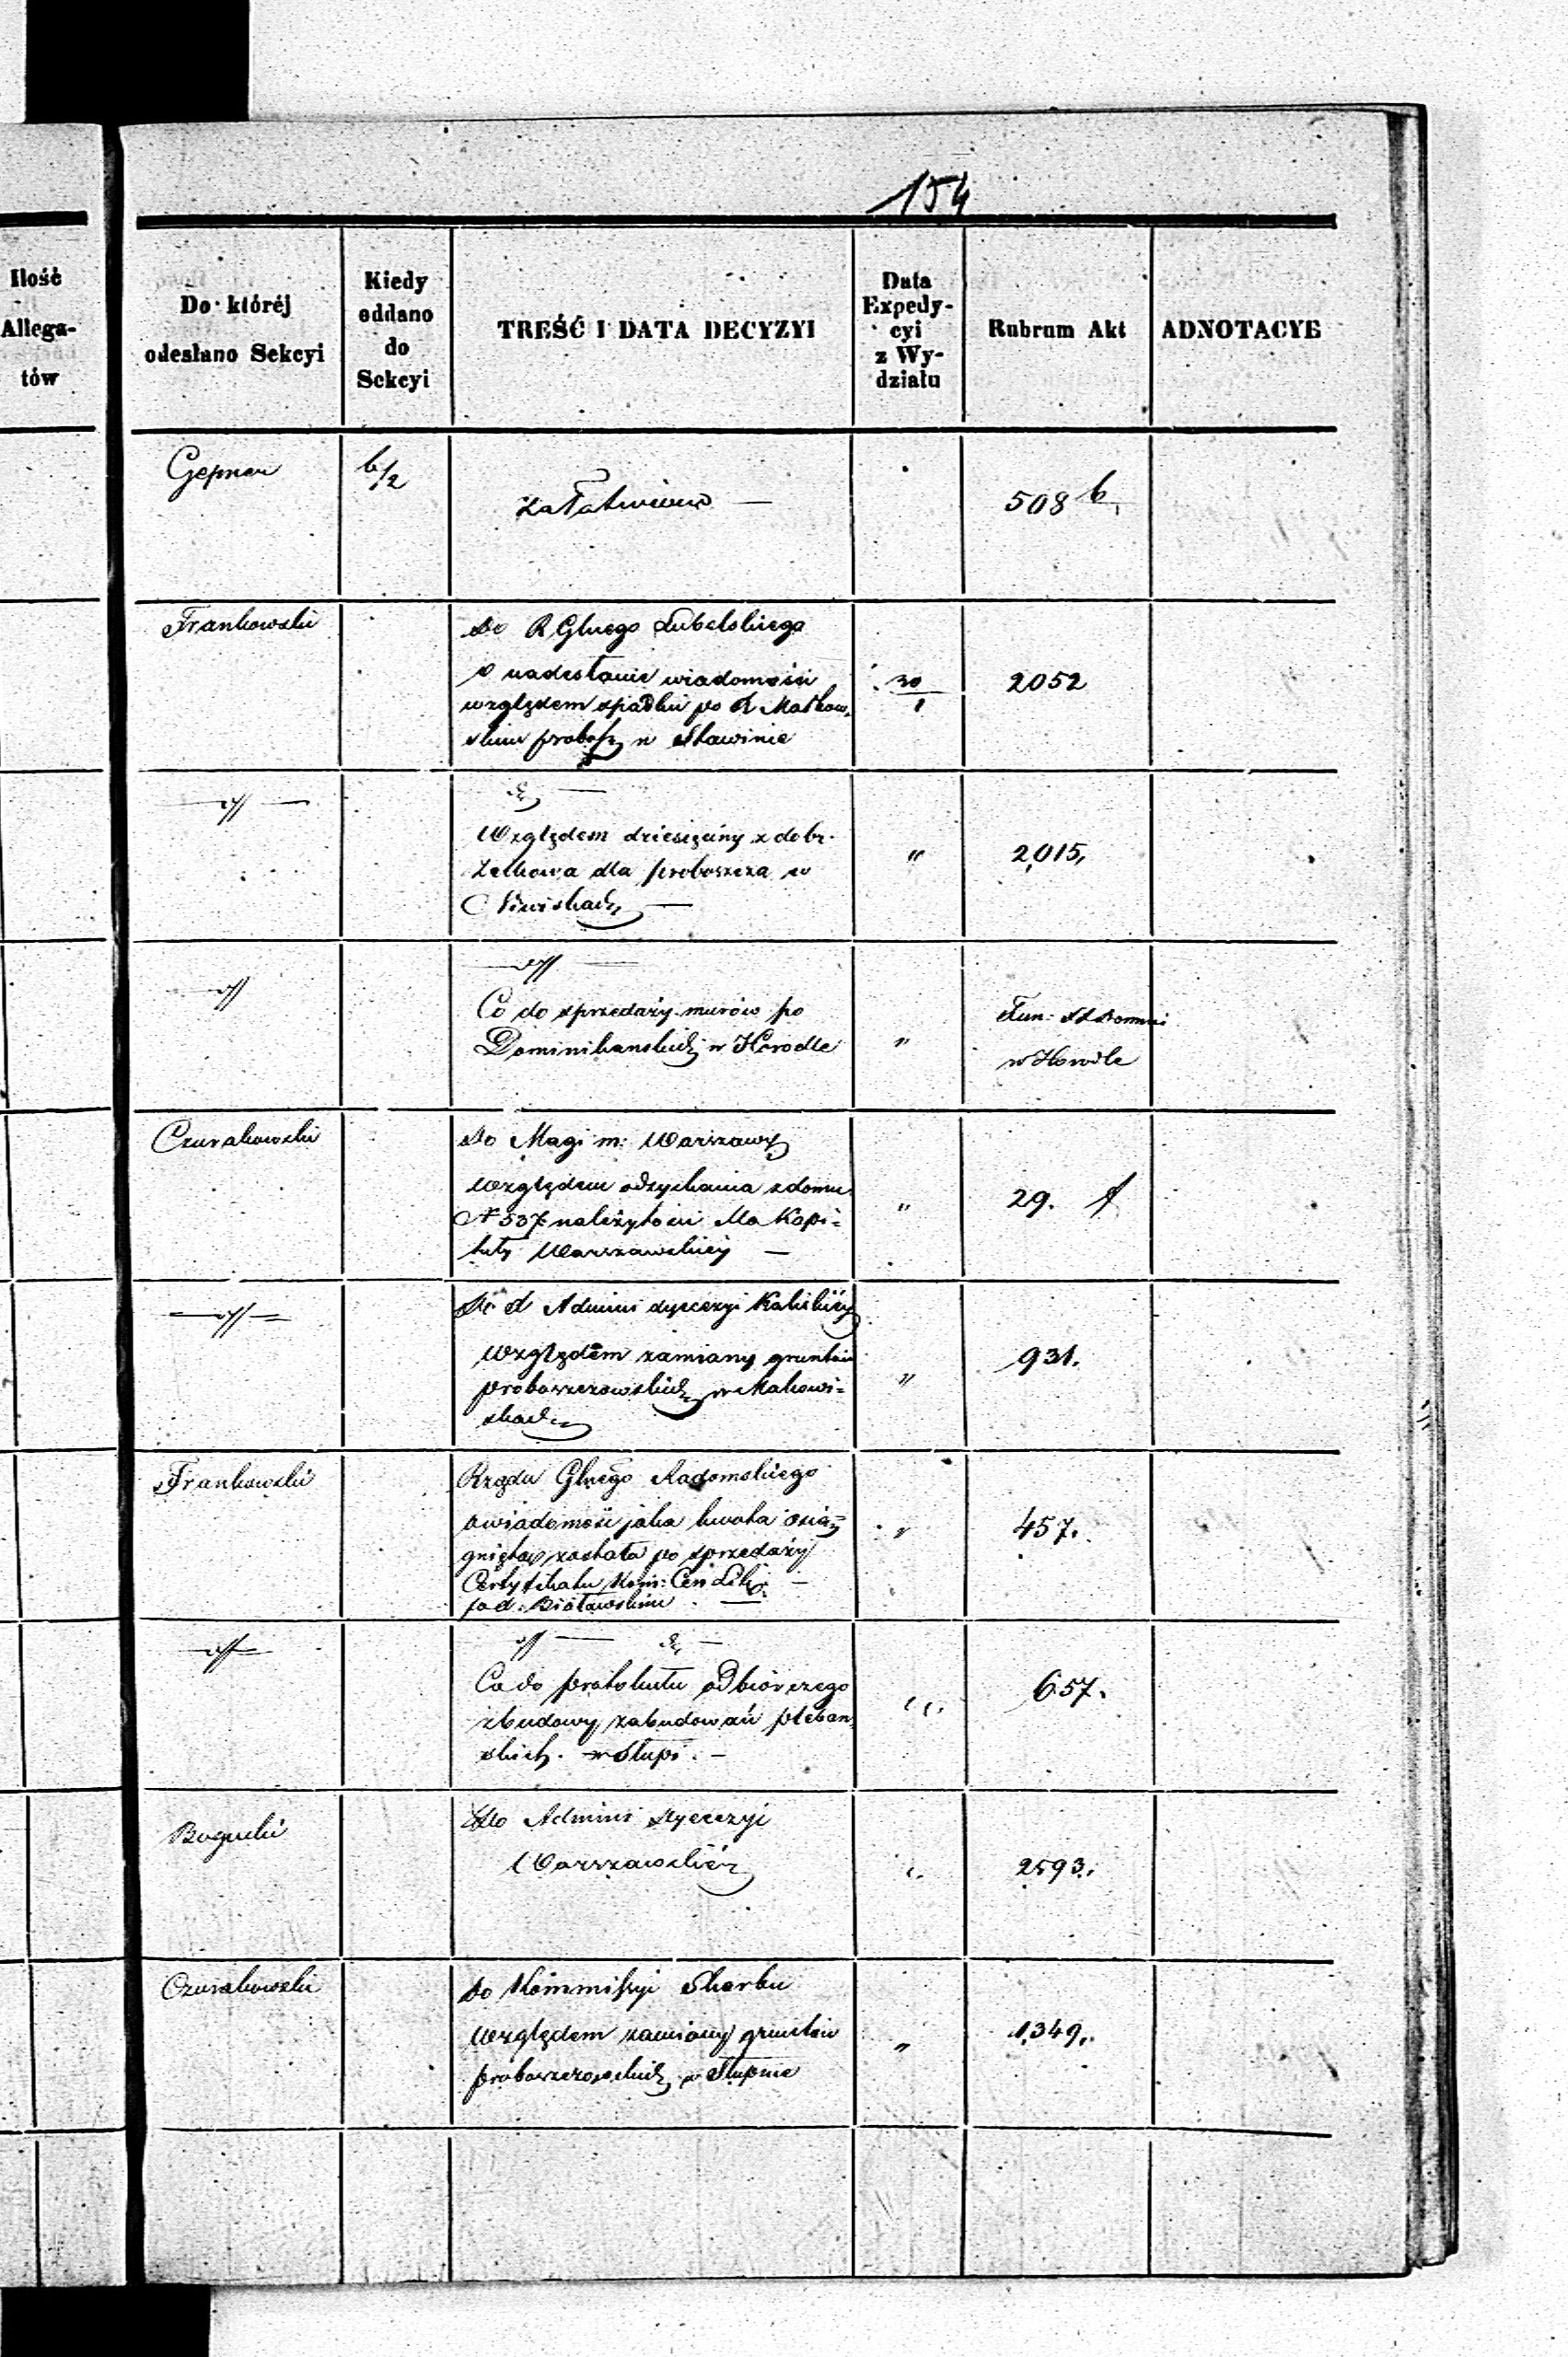 154
Ilość
Allega-
tów
Do któréj
odesłano Sekcyi
Kiedy
oddano
do
Sekcyi
TREŚĆ I DATA DECYZYI
Data
Expedy-
cyi
z Wy-
działu
Rubrum Akt
ADNOTACYE
Gepner
6/2
załatwiono —
508 b
Frankowski
Do R Glnego Lubelskiego
o nadesłanie wiadomości
względem spadku po X Małkow.
skim probosz w Sławinie
30/1
2052
Względem dziesięciny z dobr.
Żelkowa dla proboszcza w
Niwiskach —
"
2015,
Co do sprzedaży murów po
Dominikańskich w Horodle
"
w Horodle
Czurakowski
Do Magi m: Warszawy
względem odzyskania z domu
N 537 należytości dla Kapi=
tuły Warszawskiéj —
"
29. f
Do X Admini dyecezyi Kaliskiéj
względem zamiany gruntów
proboszczowskich w Makowi=
skach
"
931.
Frankowski
Rządu Glnego Radomskiego
o wiadomość jaka kwota osią=
gniętą została po sprzedaży
Certyfikatu
po X. Białawskim
"
457.
Co do protokułu odbiorczego
z budowy zabudowań pleban
skich. w Słupi. —
"
657.
Bogucki
Do Admini dyecezyi
Warszawskiéj
"
2593.
Czurakowski
Do Kommissyi Skarbu
względem zamiany gruntów
proboszczowskich w Słupnie
"
1349.